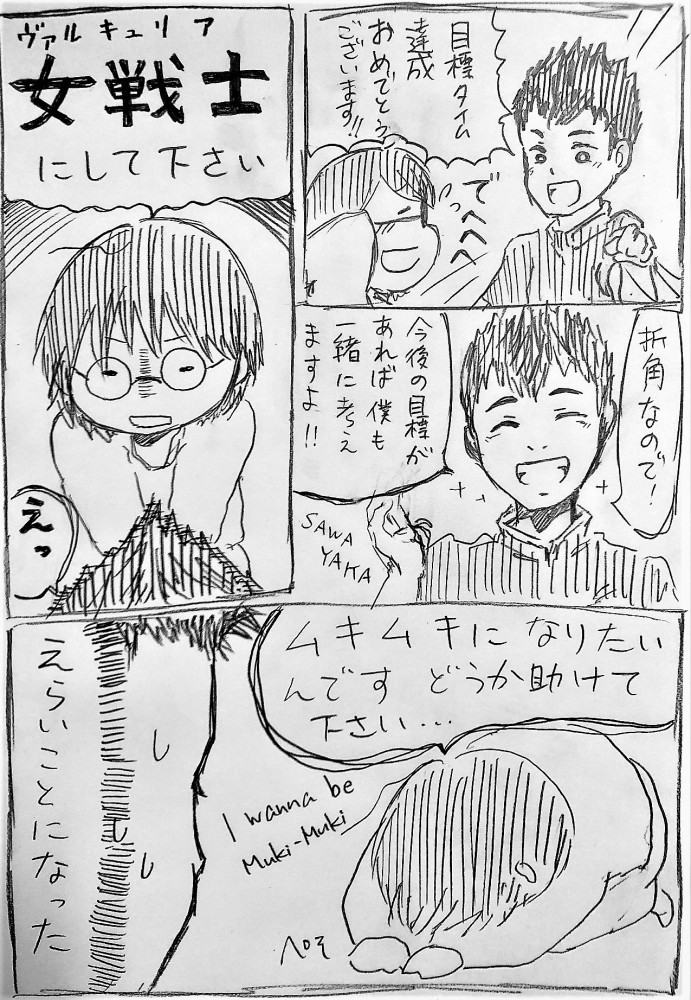 目標タイム
達成
おめでとう
ございます!!
でへへへ
折角なので!
今後の目標が
あれば僕も
一緒に考え
ますよ!!
SAWA
YAKA
ヴァルキュリア
女戦士
にして下さい
えっ
ムキムキになりたい
んです どうか助けて
下さい…
I wanna be
Muki-Muki
ペそ
えらいことになった